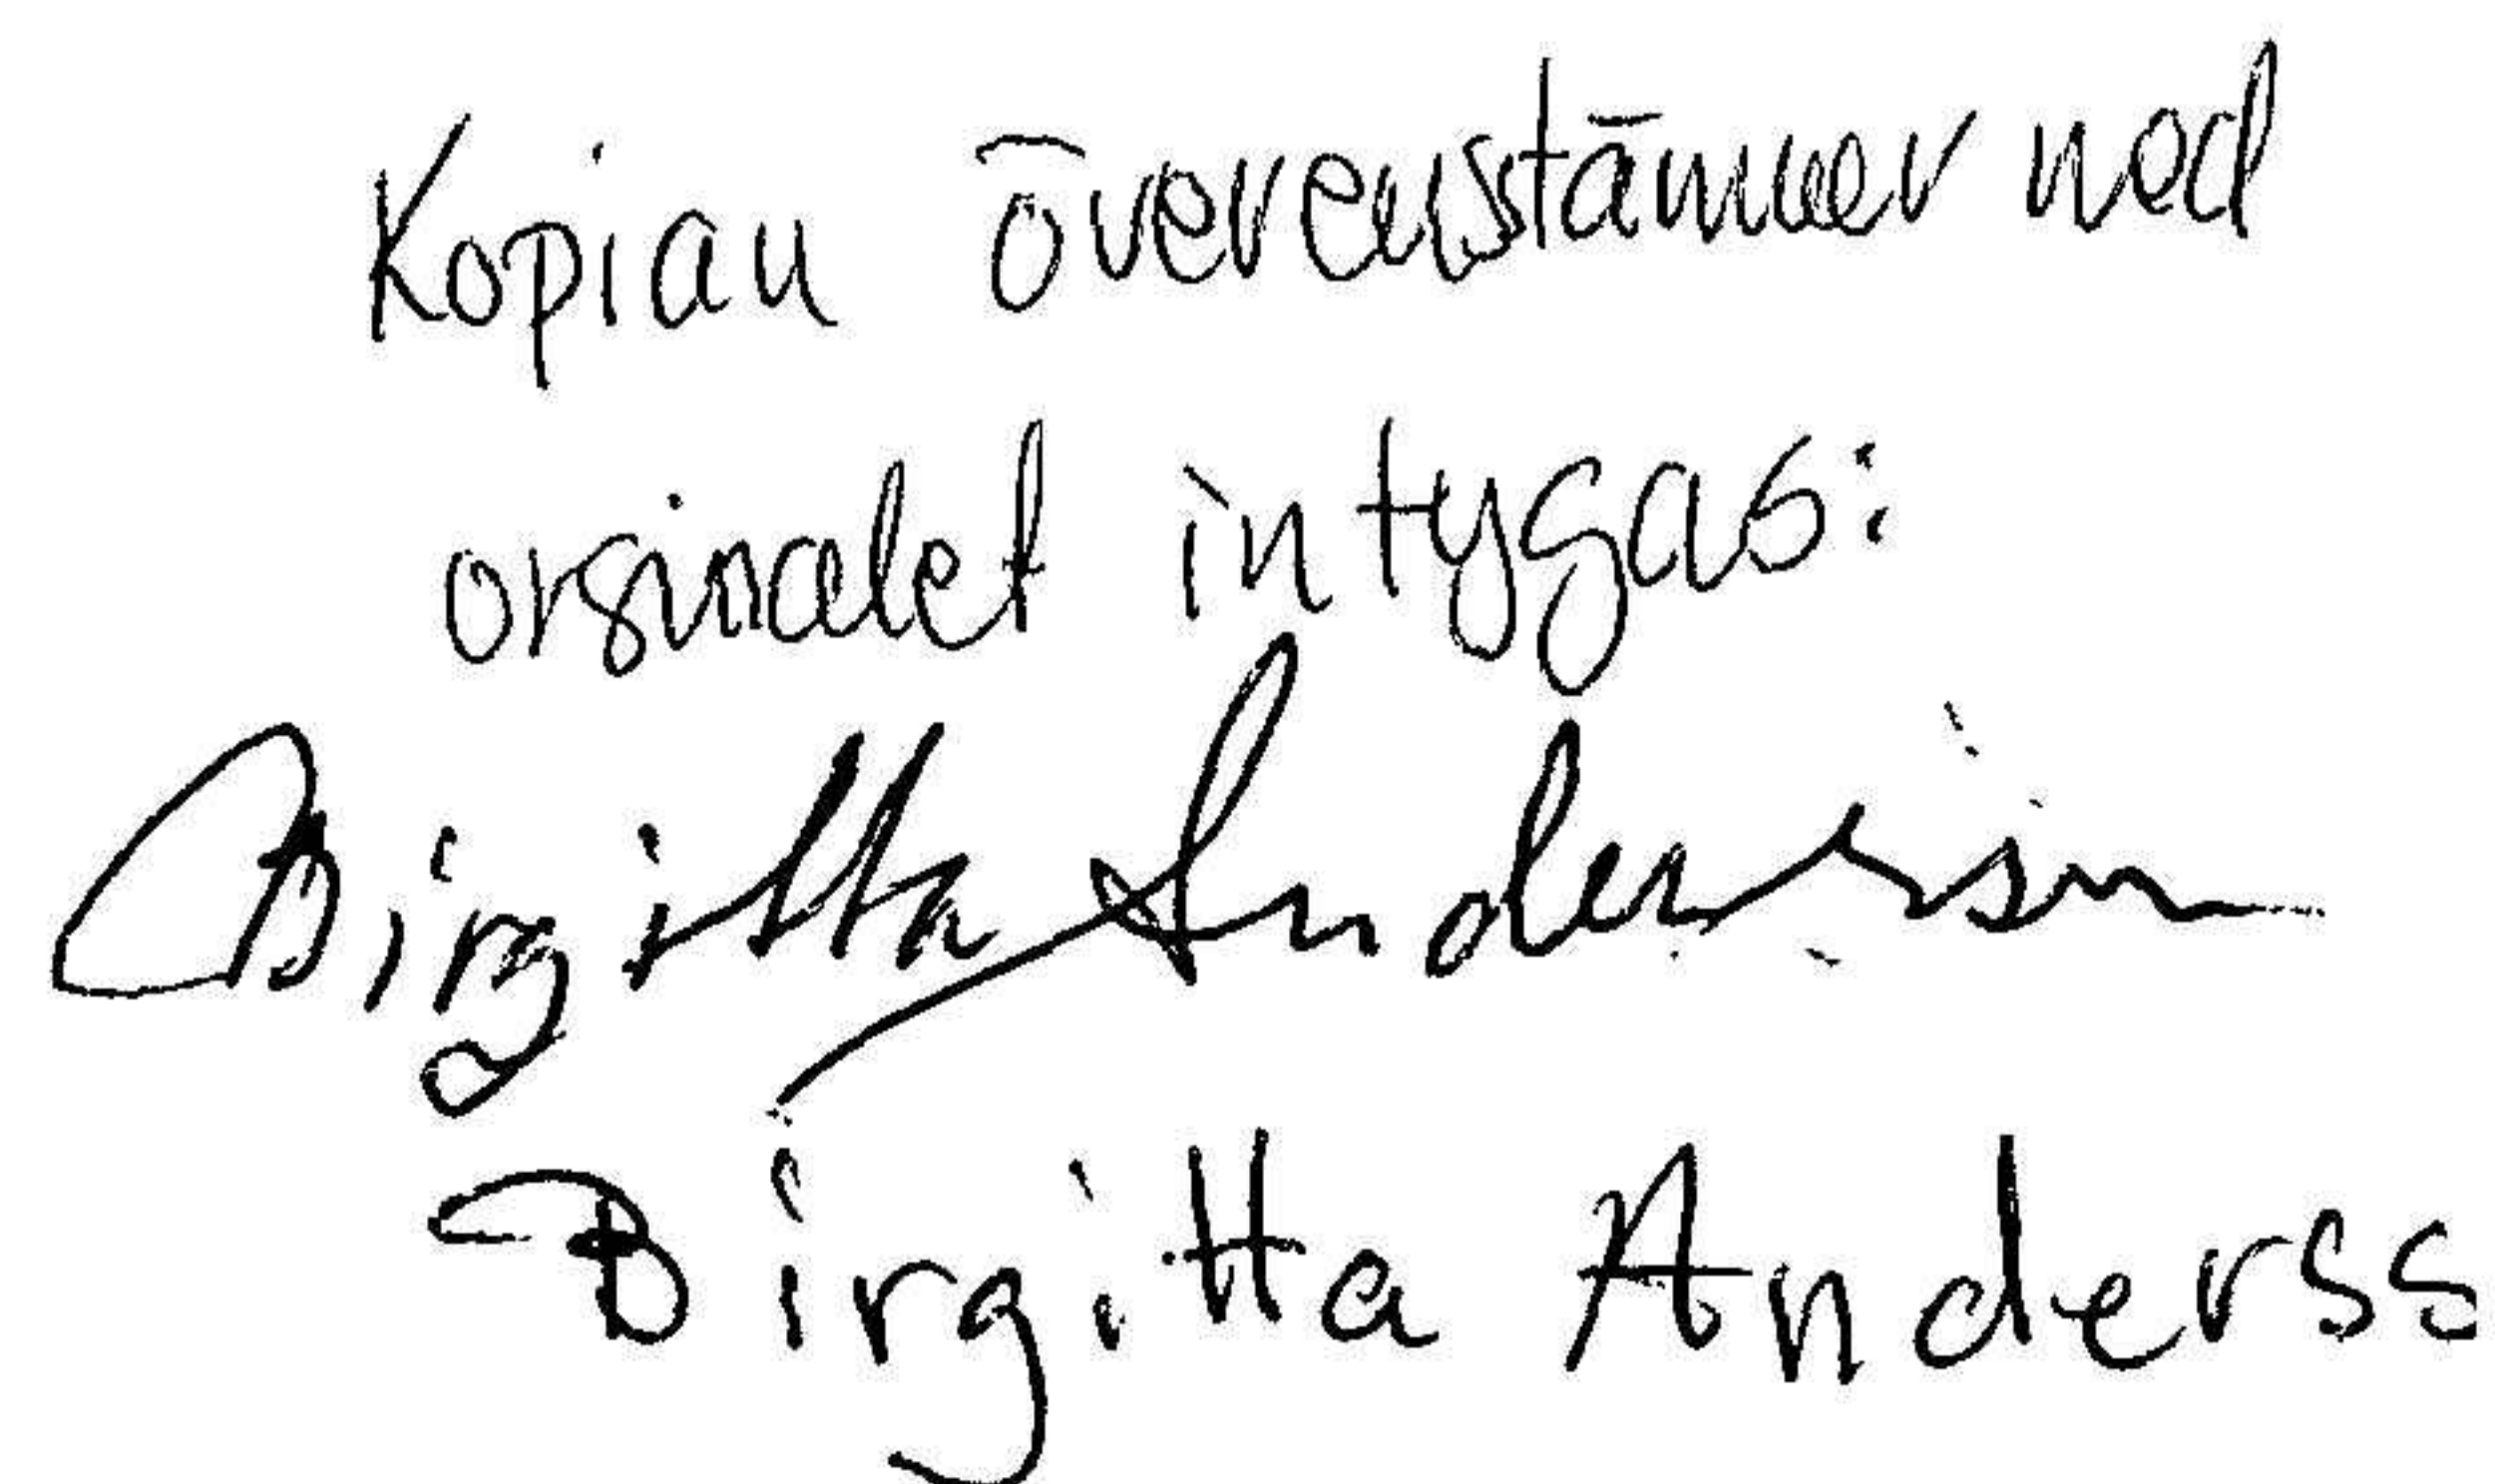 Kopian överensstämmer med
orginalet intygas:
Birgitta Andersson
Birgitta Anderss